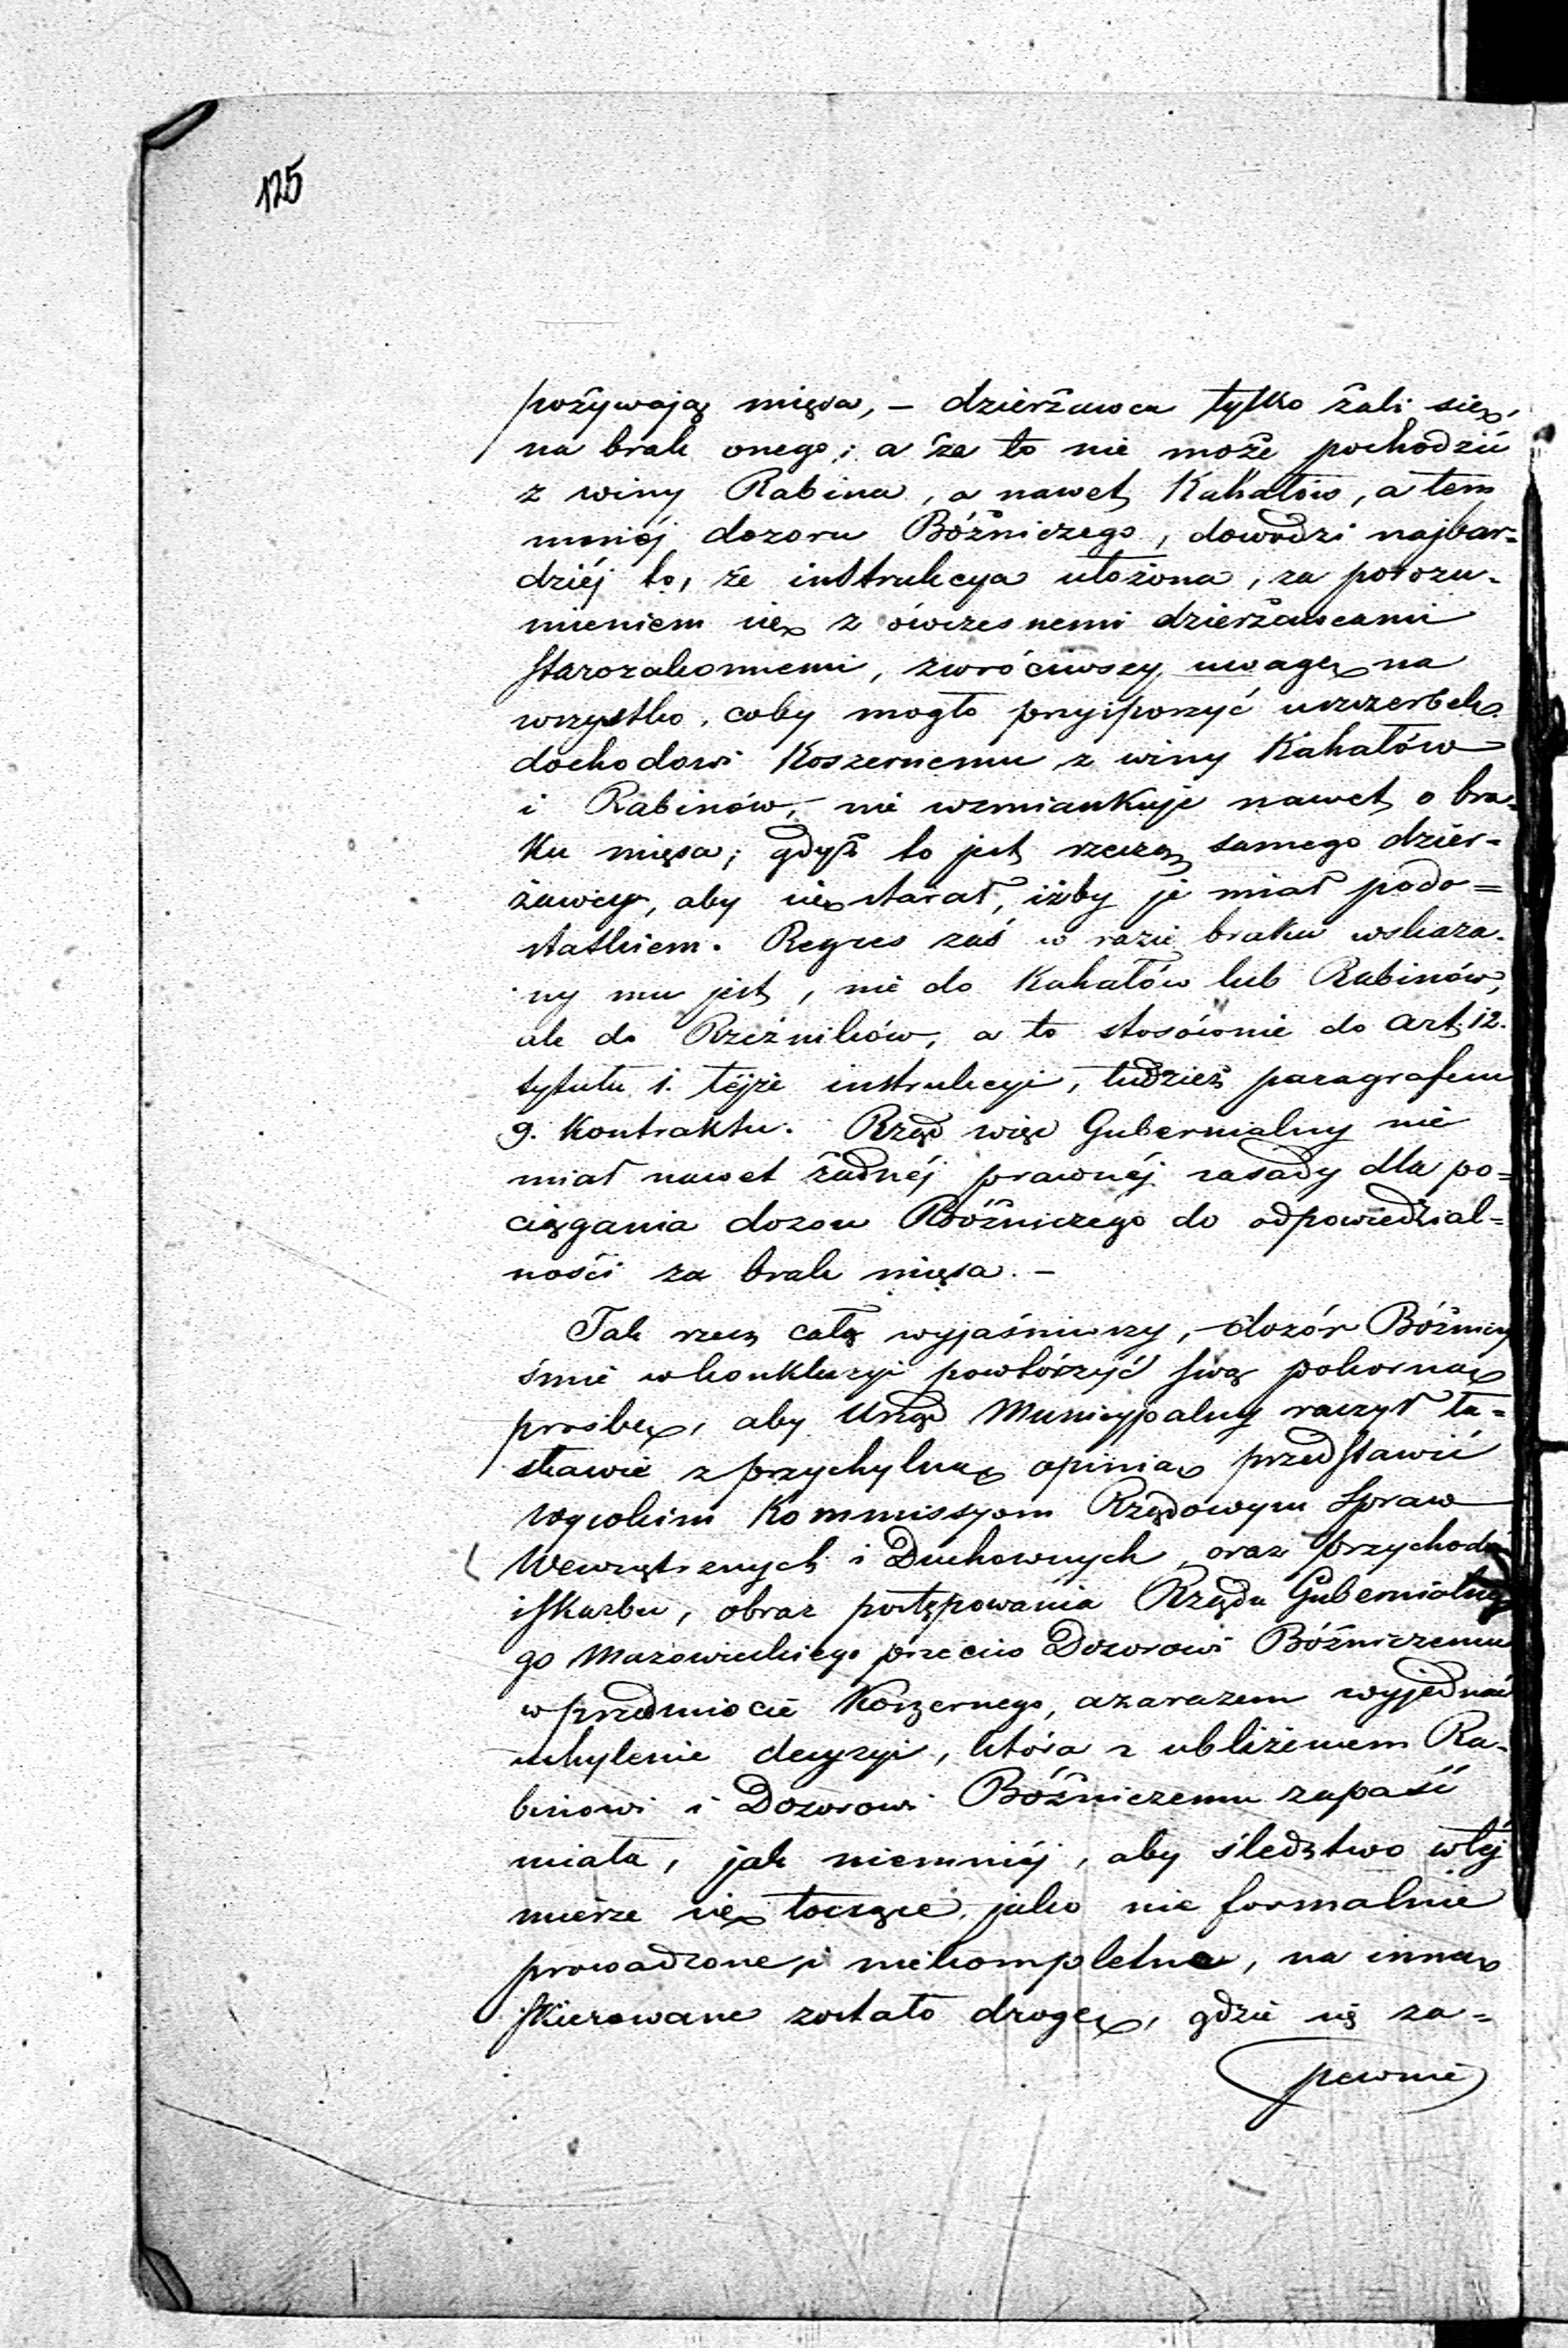 125
pożywają mięsa, – dzierżawca tylko żali się,
na brak onego; a że to nie może pochodzić
z winy Rabina, a nawet Kahałów, a tem
mniéj dozoru Bóżniczego, dowodzi najbar=
dziéj to, że instrukcya ułożona, za porozu-
mieniem się z ówczesnemi dzierżawcami
Starozakonnemi, zwróciwszy uwagę na
wszystko, coby mogło przysporzyć uszczerbek
dochodowi Koszernemu z winy Kahałów
i Rabinów, – nie wzmiankuje nawet o bra-
ku mięsa; gdyż to jest rzeczą samego dzier-
żawcy, aby się starał, iżby je miał podo=
statkiem. Regres zaś w razie braku wskaza-
ny mu jest, nie do Kahałów lub Rabinów,
ale do Rzeźników, a to stosównie do art. 12.
tytułu 1. téjże instrukcyi, tudzież paragrafem
9. Kontraktu. Rząd więc Gubernialny nie
miał nawet żadnéj prawnéj zasady dla po=
ciągania dozoru Bóżniczego do odpowiedzial=
ności za brak mięsa. –
Tak rzecz całą wyjaśniwszy, – dozór Bóżniczy
śmie w konkluzyi powtórzyć swą pokorną
prośbę, aby Urząd Municypalny raczył ła-
skawie z przychylną opinią przedstawić
Wysokim Kommissyom Rządowym Spraw
Wewnętrznych i Duchownych, oraz Przychodów
i Skarbu, obraz postępowania Rządu Gubernialne
go Mazowieckiego przeciw Dozorowi Bóżniczemu
w przedmiocie Koszernego, azarazem wyjednać
uchylenie decyzyi, która z ubliżeniem Ra-
binowi i Dozorowi Bóżniczemu zapaść
miała, jak niemniéj, aby śledztwo w téj
mierze się toczące, jako nie formalnie
prowadzone i niekompletne, na inną
skierowane zostało drogę, gdzie się za=
pewnie